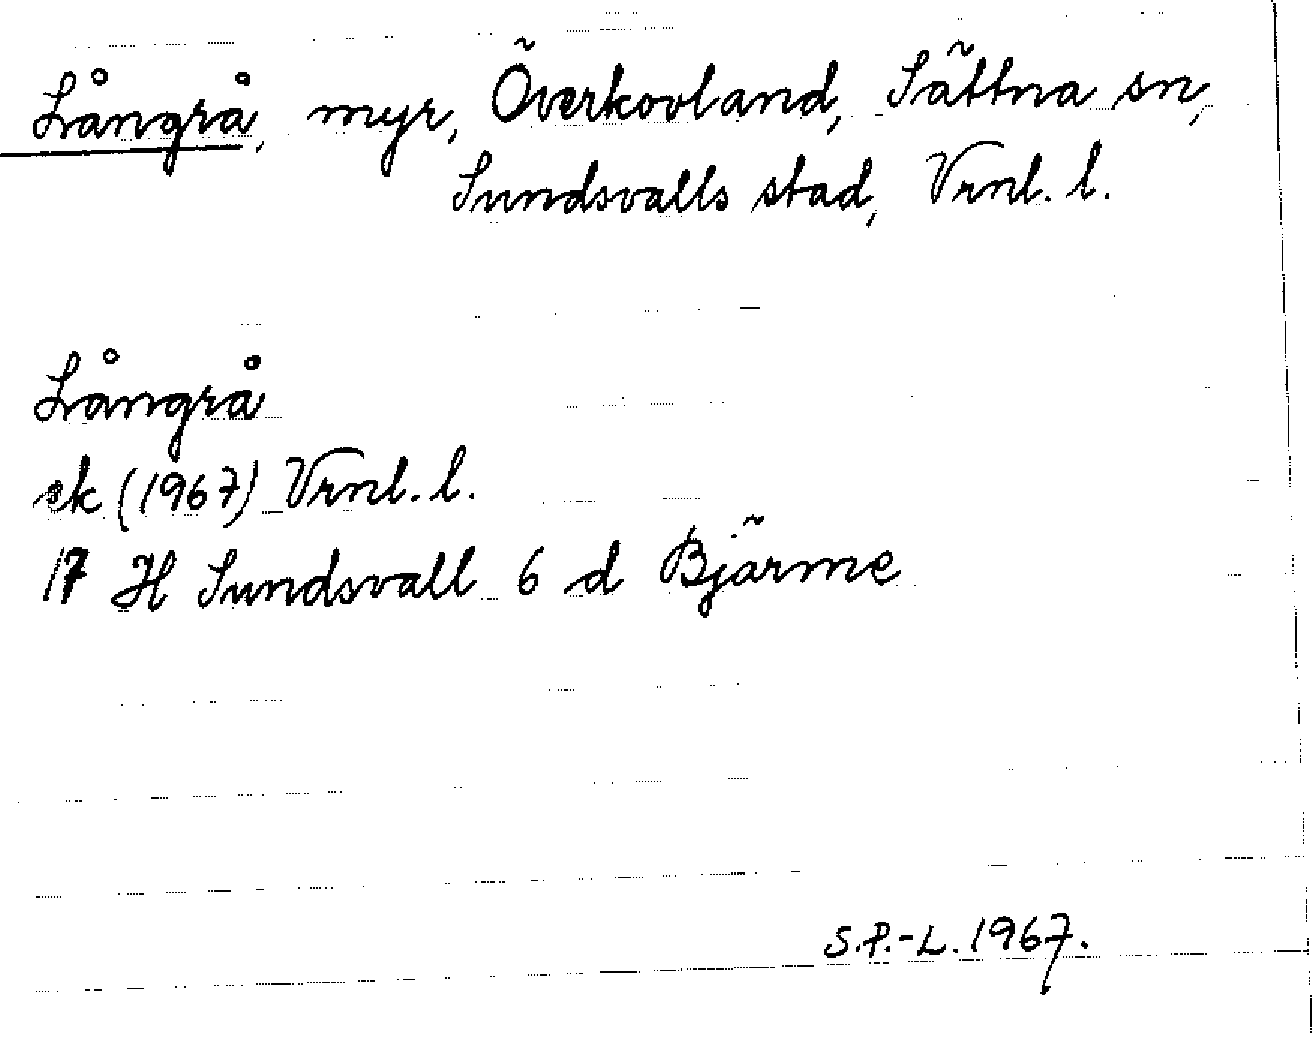 Långrå, myr, Överkovland, Sättna sn,
Sundsvalls stad, Vrnl. l.
Långrå
ek (1967) Vrnl. l.
17 H Sundsvall 6 d Bjärme
S.P.-L. 1967.